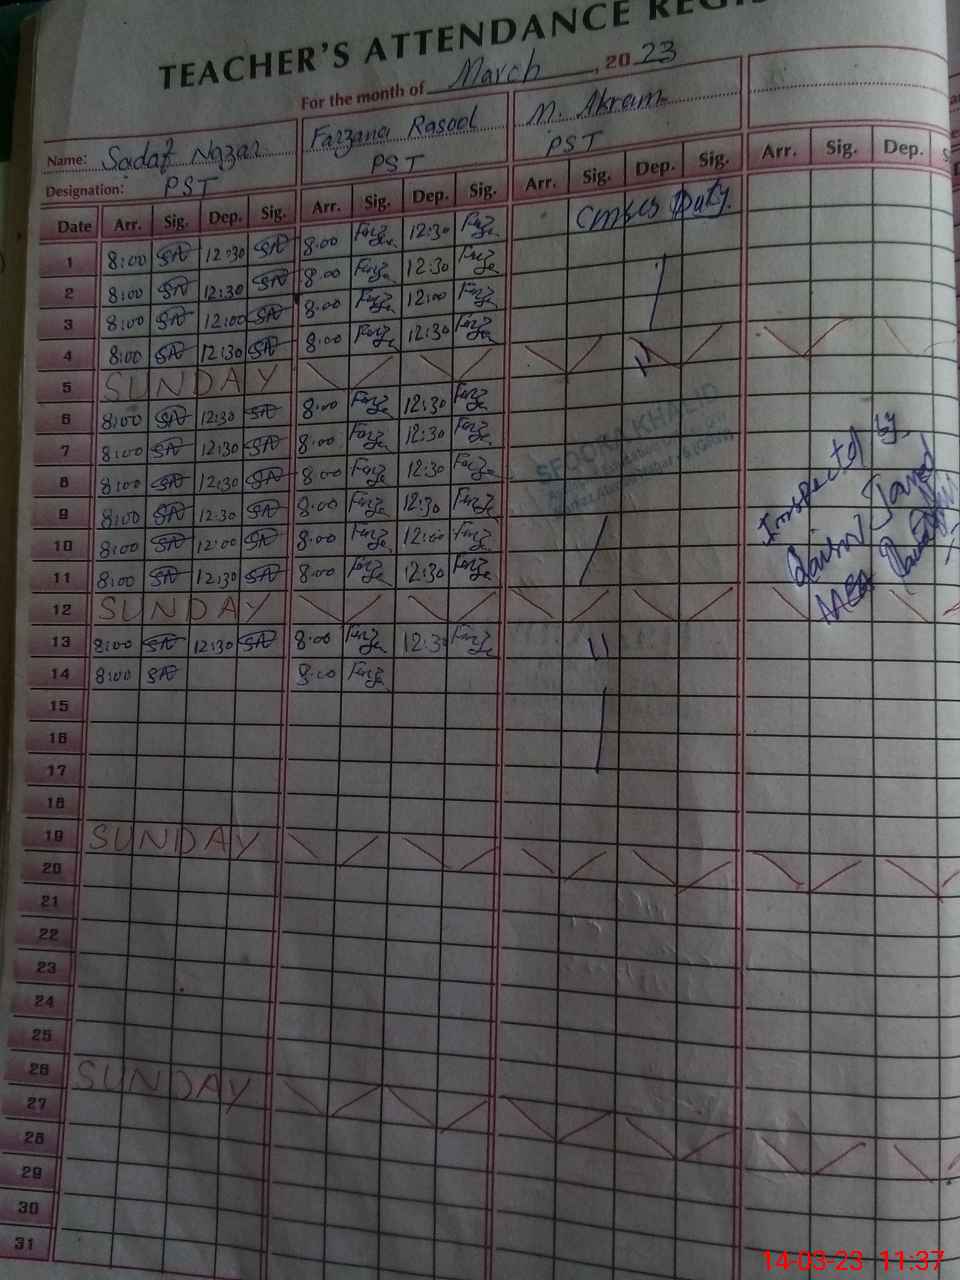 TEACHER'S ATTENDANCE REGIS
For the month of March, 2023
Name: Sadaf Nazar Farzana Rasool M. Akram
Designation: PST PST PST
Date Arr. Sig. Dep. Sig. Arr. Sig. Dep. Sig. Arr. Sig. Dep. Sig. Arr. Sig. Dep. S
1 8:00 SA 12:30 SA 8:00 12:30 Duty.
2 8:00 SA 12:30 SA 8:00 12:30
3 8:00 SA 12:00 SA 8:00 12:00
4 8:00 SA 12:30 SA 8:00 12:30
5 SUNDAY
6 8:00 SA 12:30 SA 8:00 12:30
7 8:00 SA 12:30 SA 8:00 12:30
8 8:00 SA 12:30 SA 8:00 12:30
9 8:00 SA 12:30 SA 8:00 12:30
10 8:00 SA 12:00 SA 8:00 12:00
11 8:00 SA 12:30 SA 8:00 12:30
12 SUNDAY
13 8:00 SA 12:30 SA 8:00 12:3
14 8:00 SA 8:00
15
16
17
18
19 SUNDAY
20
21
22
23
24
25
26 SUNDAY
27
28
29
30
31
KHALID
Inspected by
Javed
MEA
14-03-23 11:37